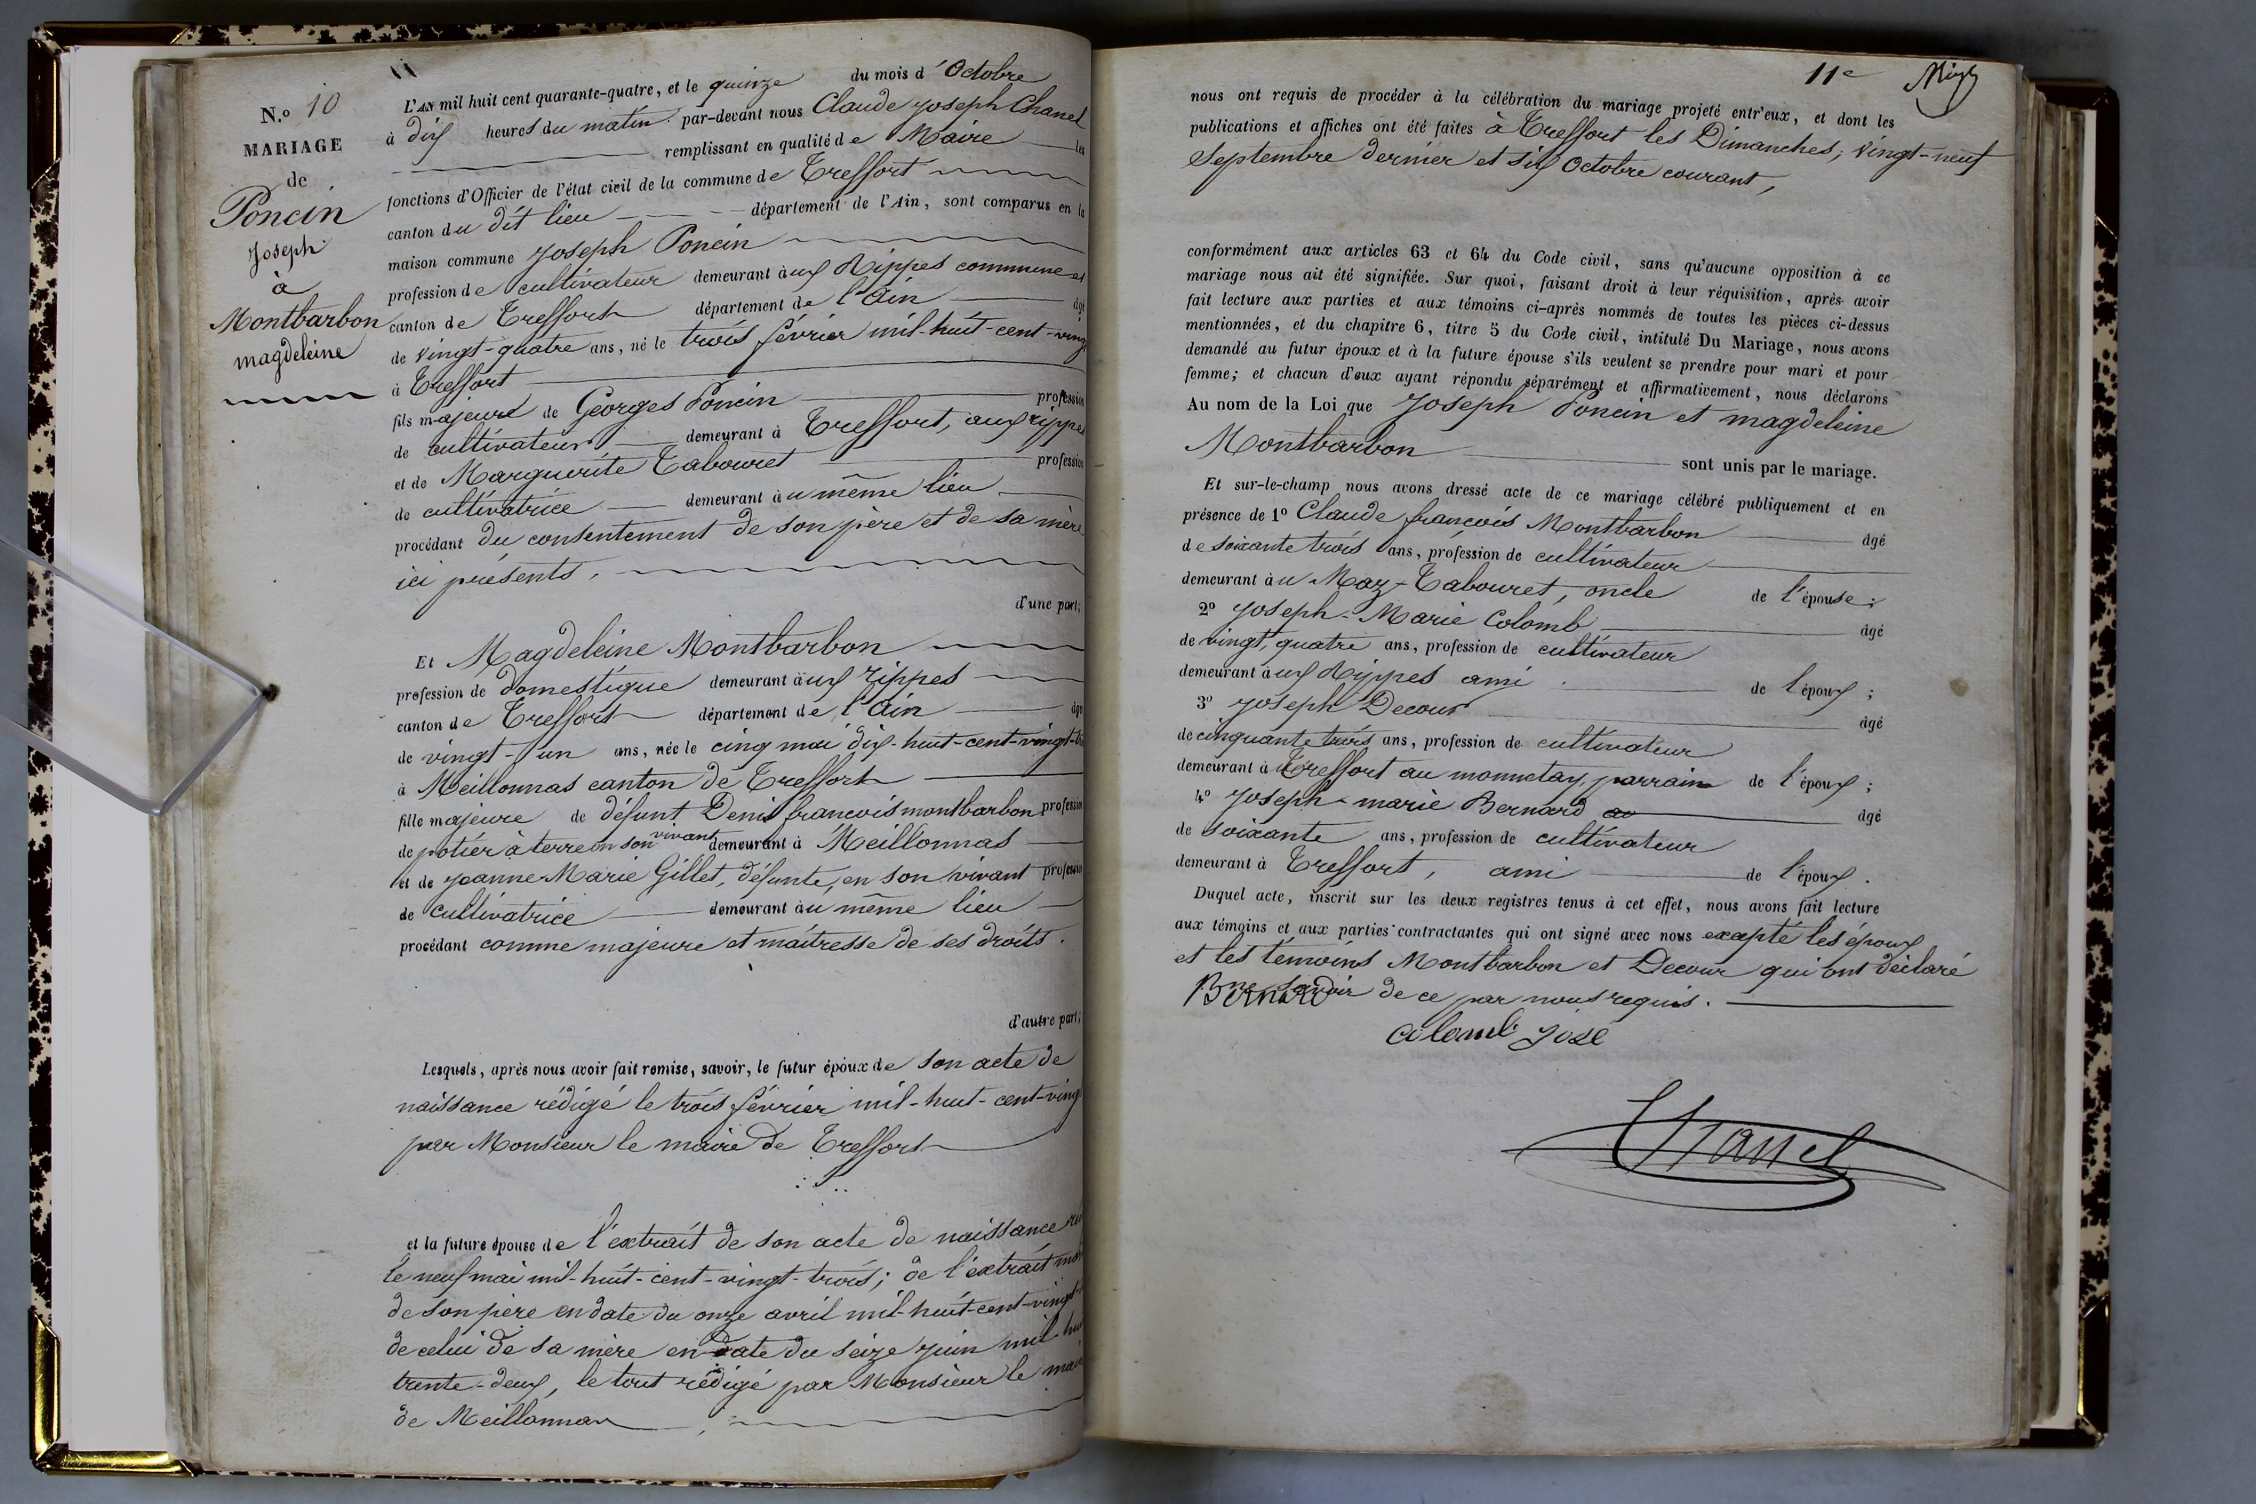 N.o 10
MARIAGE
de
Poncin
Joseph
à
Montbarbon
magdeleine
L'AN mil huit cent quarante-quatre, et le quinze du mois d'Octobre
à dix heures du matin par-devant nous Claude Joseph Chanel
remplissant en qualité de Maire les
fonctions d'Officier de l'état civil de la commune de Treffort
canton du dit lieu département de l'Ain, sont comparus en la
maison commune Joseph Poncin
profession de cultivateur demeurant aux Rippes commune et
canton de Treffort département de l'Ain âgé
de vingt-quatre ans, né le trois février mil-huit-cent-vingt
à Treffort
fils majeur de Georges Poncin profession
de cultivateur demeurant à Treffort, aux rippes
et de Marguerite Tabouret profession
de cultivatrice demeurant au même lieu
procédant du consentement de son père et de sa mère
ici présents,
d'une part;
Et Magdeleine Montbarbon
profession de domestique demeurant aux rippes
canton de Treffort département de l'Ain âgé
de vingt-un ans, née le cinq mai dix-huit-cent-vingt-
à Meillonnas canton de Treffort
fille majeure de défunt Denis françois montbarbon profession
de potier à terre en son vivant demeurant à Meillonnas
et de Jeanne-Marie Gillet, défunte, en son vivant profession
de cultivatrice demeurant au même lieu
procédant comme majeure et maîtresse de ses droits.
d'autre part;
Lesquels, après nous avoir fait remise, savoir, le futur époux de son acte de
naissance rédigé le trois février mil-huit-cent-vingt
par Monsieur le maire de Treffort
et la future épouse de l'extrait de son acte de naissance
le neuf mai mil-huit-cent-vingt-trois; de l'extrait
de son père en date du onze avril mil-huit-cent-vingt-
de celui de sa mère en date du seize juin mil-
trente-deux, le tout rédigé par Monsieur le maire
de Meillonnas
11e
nous ont requis de procéder à la célébration du mariage projeté entr'eux, et dont les
publications et affiches ont été faites à Treffort les Dimanches, vingt-neuf
Septembre dernier et six Octobre courant,
conformément aux articles 63 et 64 du Code civil, sans qu'aucune opposition à ce
mariage nous ait été signifiée. Sur quoi, faisant droit à leur réquisition, après avoir
fait lecture aux parties et aux témoins ci-après nommés de toutes les pièces ci-dessus
mentionnées, et du chapitre 6, titre 5 du Code civil, intitulé Du Mariage, nous avons
demandé au futur époux et à la future épouse s'ils veulent se prendre pour mari et pour
femme; et chacun d'eux ayant répondu séparément et affirmativement, nous déclarons
Au nom de la Loi que Joseph Poncin et magdeleine
Montbarbon sont unis par le mariage.
Et sur-le-champ nous avons dressé acte de ce mariage célébré publiquement et en
présence de 1o Claude françois Montbarbon âgé
de soixante trois ans, profession de cultivateur
demeurant au Maz-Tabouret, oncle de l'épouse;
2o Joseph-Marie Colomb âgé
de vingt, quatre ans, profession de cultivateur
demeurant aux Rippes ami de l'époux;
3o Joseph Decour âgé
de cinquante trois ans, profession de cultivateur
demeurant à Treffort au monnetay, parrain de l'époux;
4o Joseph-marie Bernard âgé
de soixante ans, profession de cultivateur
demeurant à Treffort, ami de l'époux.
Duquel acte, inscrit sur les deux registres tenus à cet effet, nous avons fait lecture
aux témoins et aux parties contractantes qui ont signé avec nous excepté les époux
et les témoins Montbarbon et Decour qui ont déclaré
ne savoir de ce par nous requis.
Bernard
colomb José
Chanel